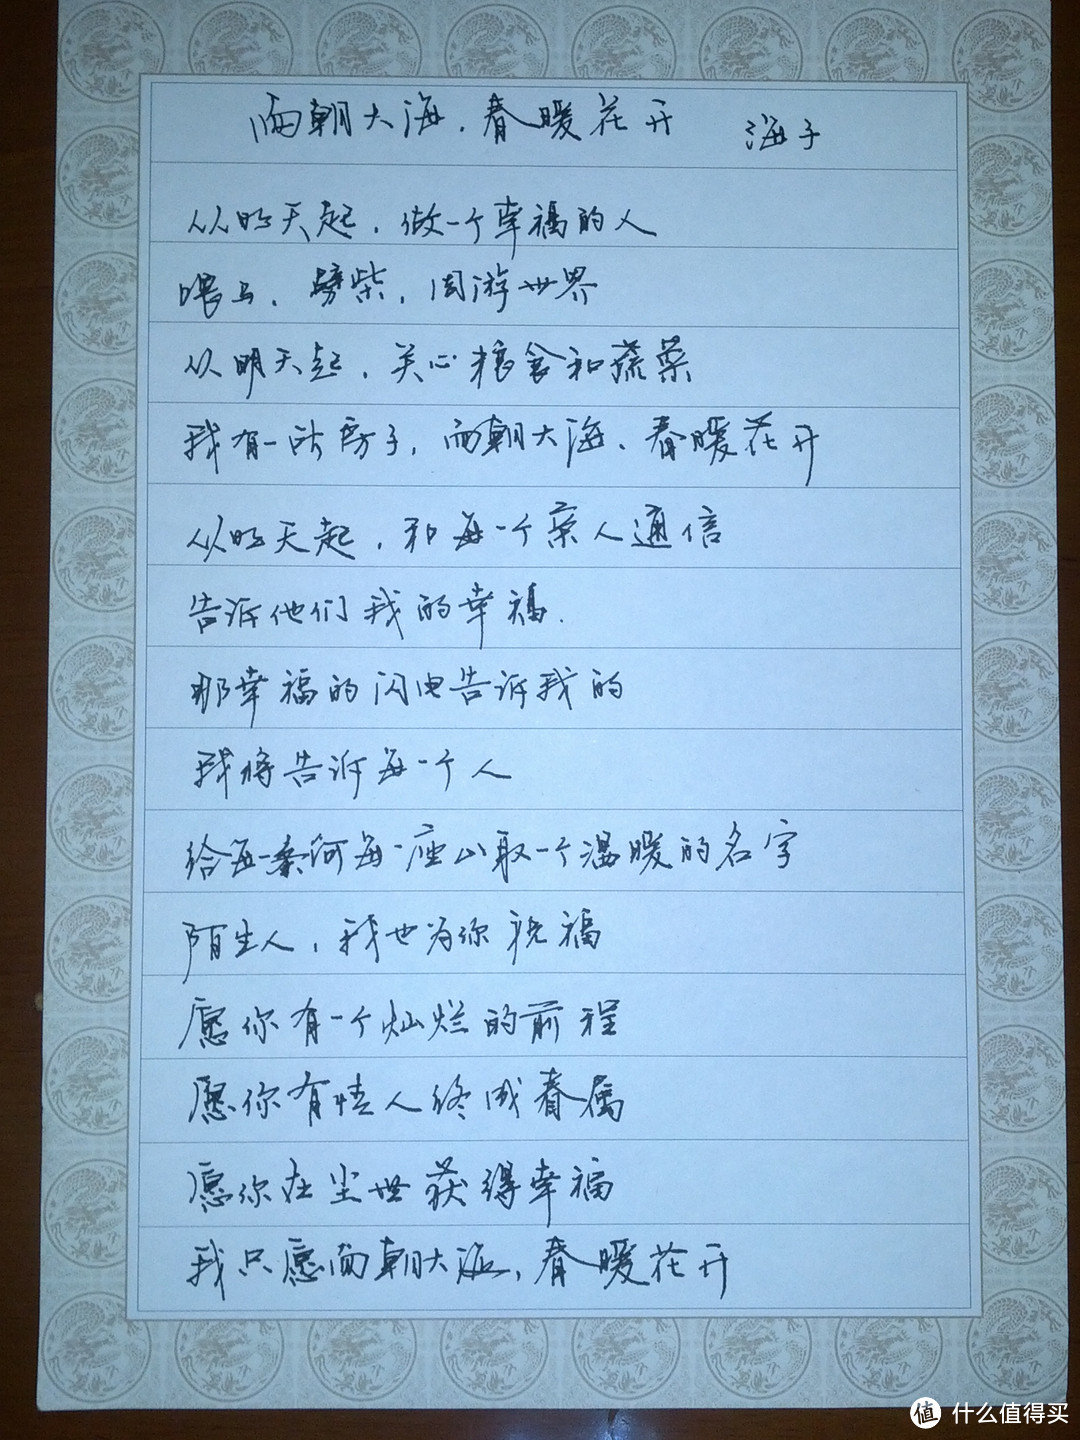 面朝大海，春暖花开 海子
从明天起，做一个幸福的人
喂马，劈柴，周游世界
从明天起，关心粮食和蔬菜
我有一所房子，面朝大海，春暖花开
从明天起，和每一个亲人通信
告诉他们我的幸福.
那幸福的闪电告诉我的
我将告诉每一个人
给每一条河每一座山取一个温暖的名字
陌生人，我也为你祝福
愿你有一个灿烂的前程
愿你有情人终成眷属
愿你在尘世获得幸福
我只愿面朝大海，春暖花开
值 什么值得买